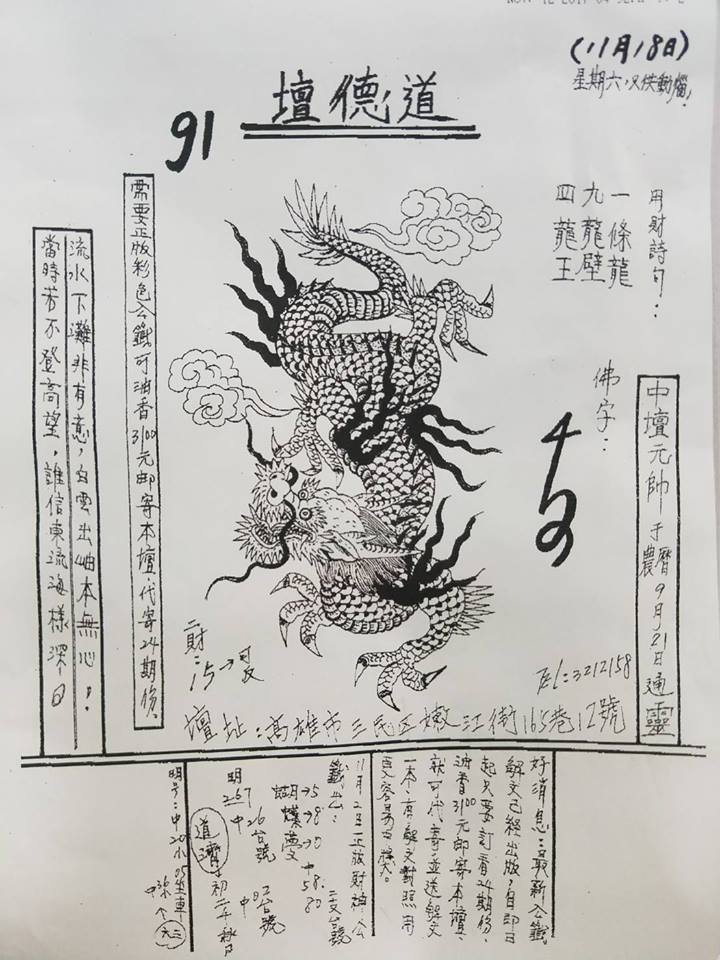 (11月18日)
星期六,
道德壇
91
用財詩句：
一條龍
九龍壁
四龍王
佛字：
中壇元帥 于農曆9月21日通靈
需要正版彩色公籤可油香3100元郵寄本壇.代寄24期份.
流水下灘非有意，白雲出岫本無心，
當時若不登高望，誰信東流海樣深，日
二財：15→可反
TEL:3212158
壇址：高雄市三民区嫩江街165巷12號
好消息：最新公籤
解文已經出版，自即日
起只要訂看24期份、
油香3100元郵寄本壇.
就可代寄.並送解文
一本.有解文對照用
更容易中獎.
11月2日 正版財神公
籤出：
蝴→5
蝶→8
夢→0
中58.80
二支台號
明267
中26台號
中02台號
道濟
明号：中20
坐車